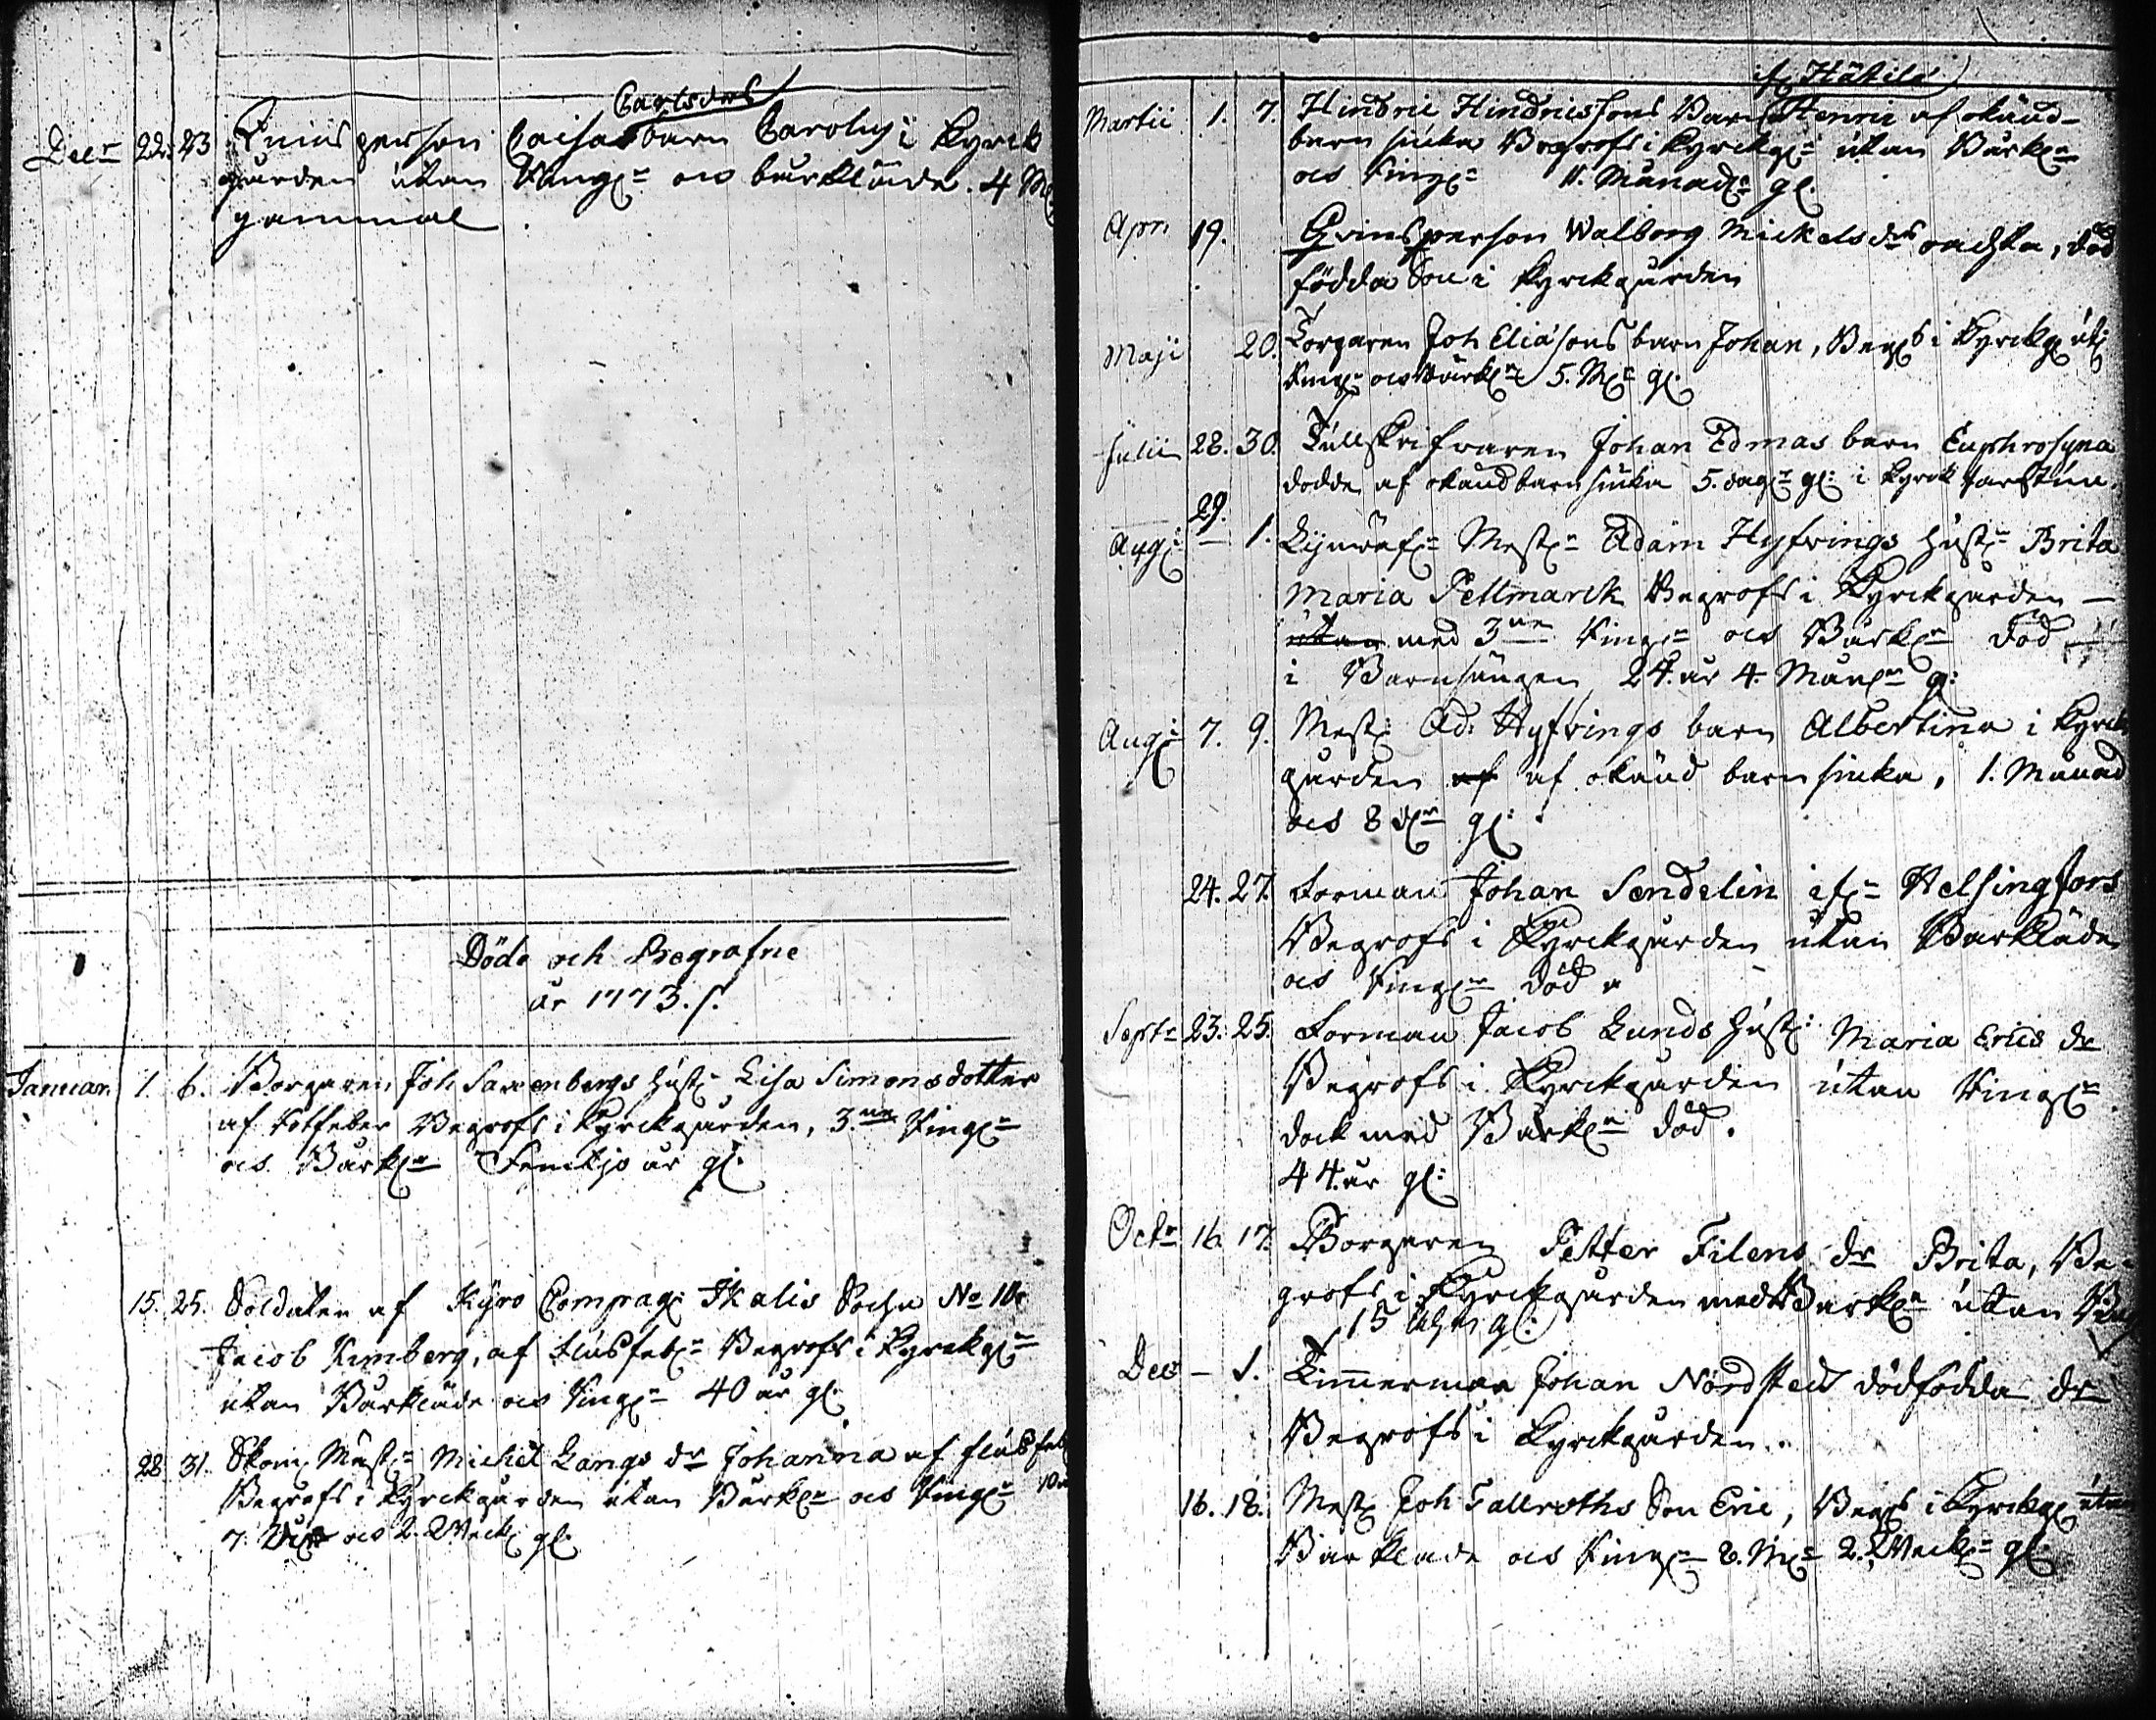 Carlsdr
Decr 22. 23 Quinsperson Caisas barn Carolus i Kyrck
gården utan Ringn och bårkläde. 4 M
gammal
Döde och Begrafne
år 1773.
Januar. 1. 6. Borgaren Joh Sarrenbergs hust. Lisa Simonsdotter
af Rötfeber Begrofs i Kyrckgården, 3ne Ringn
och Bårkn Femtjo år gl.
15. 25. Soldaten af Kyro Compag: Ikalis Sochn No 10
Jacob Kimberg, af fläckfebn Begrofs i Kyrckgn
utan Bårkläde och Ringn 40 år gl.
28 31. Skom. Mäst. Michel Langs dr Johanna af fläckfeb
Begrofs i Kyrckgården utan Bårkn och Ringn
7. och 2. Weck gl.
ifr Hätilä
Martii 1. 7. Hindric Hindricssons Barn Henric af okänd
barnsiuka Begrofs i Kyrckgn utan Bårkn
och Ringn 11. Månadn gl.
Apr. 19. Qvinsperson Walborg Mickelsdrs oächta, död
födda Son i Kyrckgården
Maji 20. Torparen Joh Eliäsons barn Johan, Begrs i Kyrckg ut
Ringn och Bårkn 5. Mn gl.
Julii 28. 30. Tullskrifvaren Johan Edmas barn Euphrosyna
dödde af okänd barnsiuka 5. dagn gl: i Kyrck
Augi 29. 1. Linväfn Mestn Adam Hyfvings hustn Brita
Maria Pellmarck Begrofs i Kyrckgården
utan med 3ne Ringn och Bårkn död
i Barnsängen 24. år 4. Månn g:
Augi 7. 9. Mest: Ad: Hyfvings barn Albertina i Kyrck
gården af af okänd barnsiuka, 1. Månad
och 8 dn gl:
24. 27. Forman Johan Sendelin ifn Helsingfors
Begrofs i Kyrckgården utan Barkläde
och Ringn död
Septr 23. 25. Forman Jacob Lunds hust: Maria Erics dr
Begrofs i Kyrckgården utan Ringn
dock med Bårkn död.
44. år gl:
Octr 16. 17. Borgaren Petter Filens dr Brita, Be-
grofs i Kyrckgården med Barkn utan
15 gl:
Decr – 1. Timmerman Johan Nordstedt dödfödda dr
Begrofs i Kyrckgården.
16. 18. Mest Joh Fallroths Son Eric, Begrs i Kyrckg utan
Barklade och Ringn 8. Mn 2. Weckn gl.